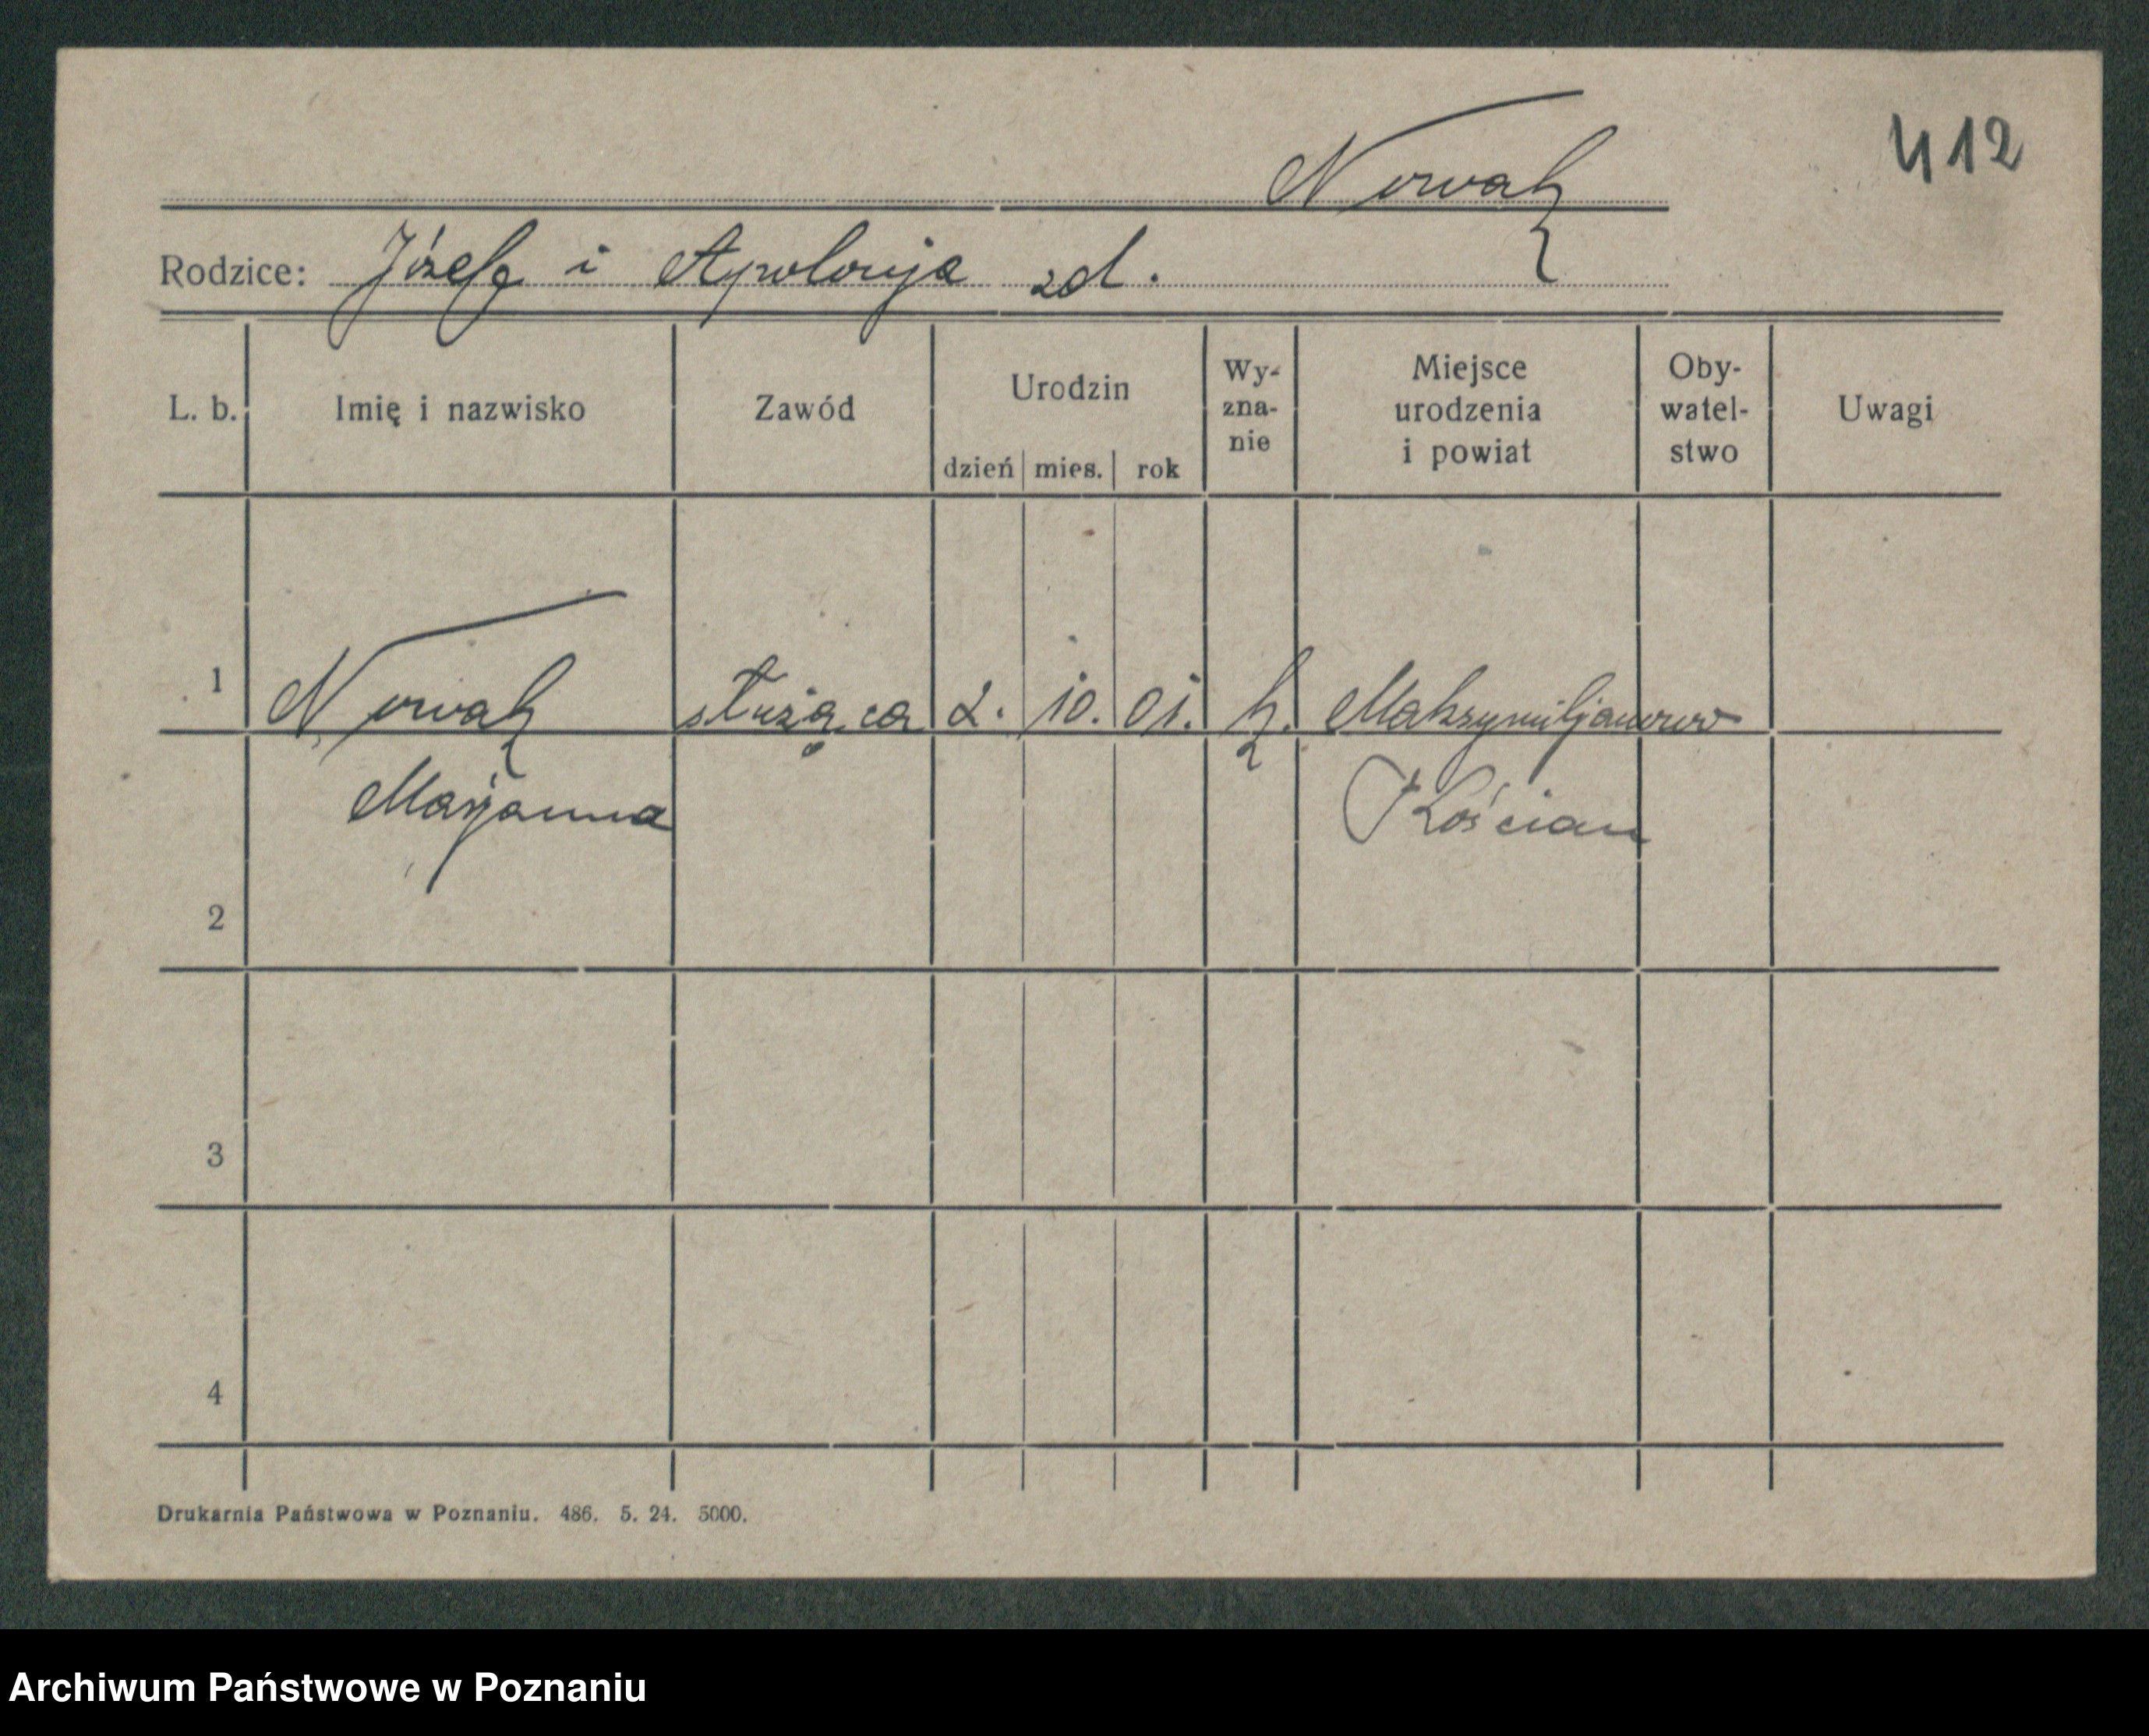 412
Nowak
Rodzice: Józef i Apolonja zd.
L. b. Imię i nazwisko Zawód Urodzin dzień mies. rok Wy-zna-nie Miejsce urodzenia i powiat Oby-watel-stwo Uwagi
1 Nowak służąca 2. 10. 01. k. Maksymiljanowo
Marjanna Kościan
2
3
4
Drukarnia Państwowa w Poznaniu. 486. 5. 24. 5000.
Archiwum Państwowe w Poznaniu